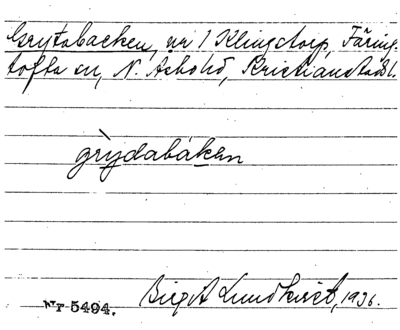 Grytabacken, nr 1 Klingstorp, Färing-
tofta sn, N. Åsbohd, Kristianstads l.
grỳdabákен
Nr 5494. Birgit Lundkvist, 1936.